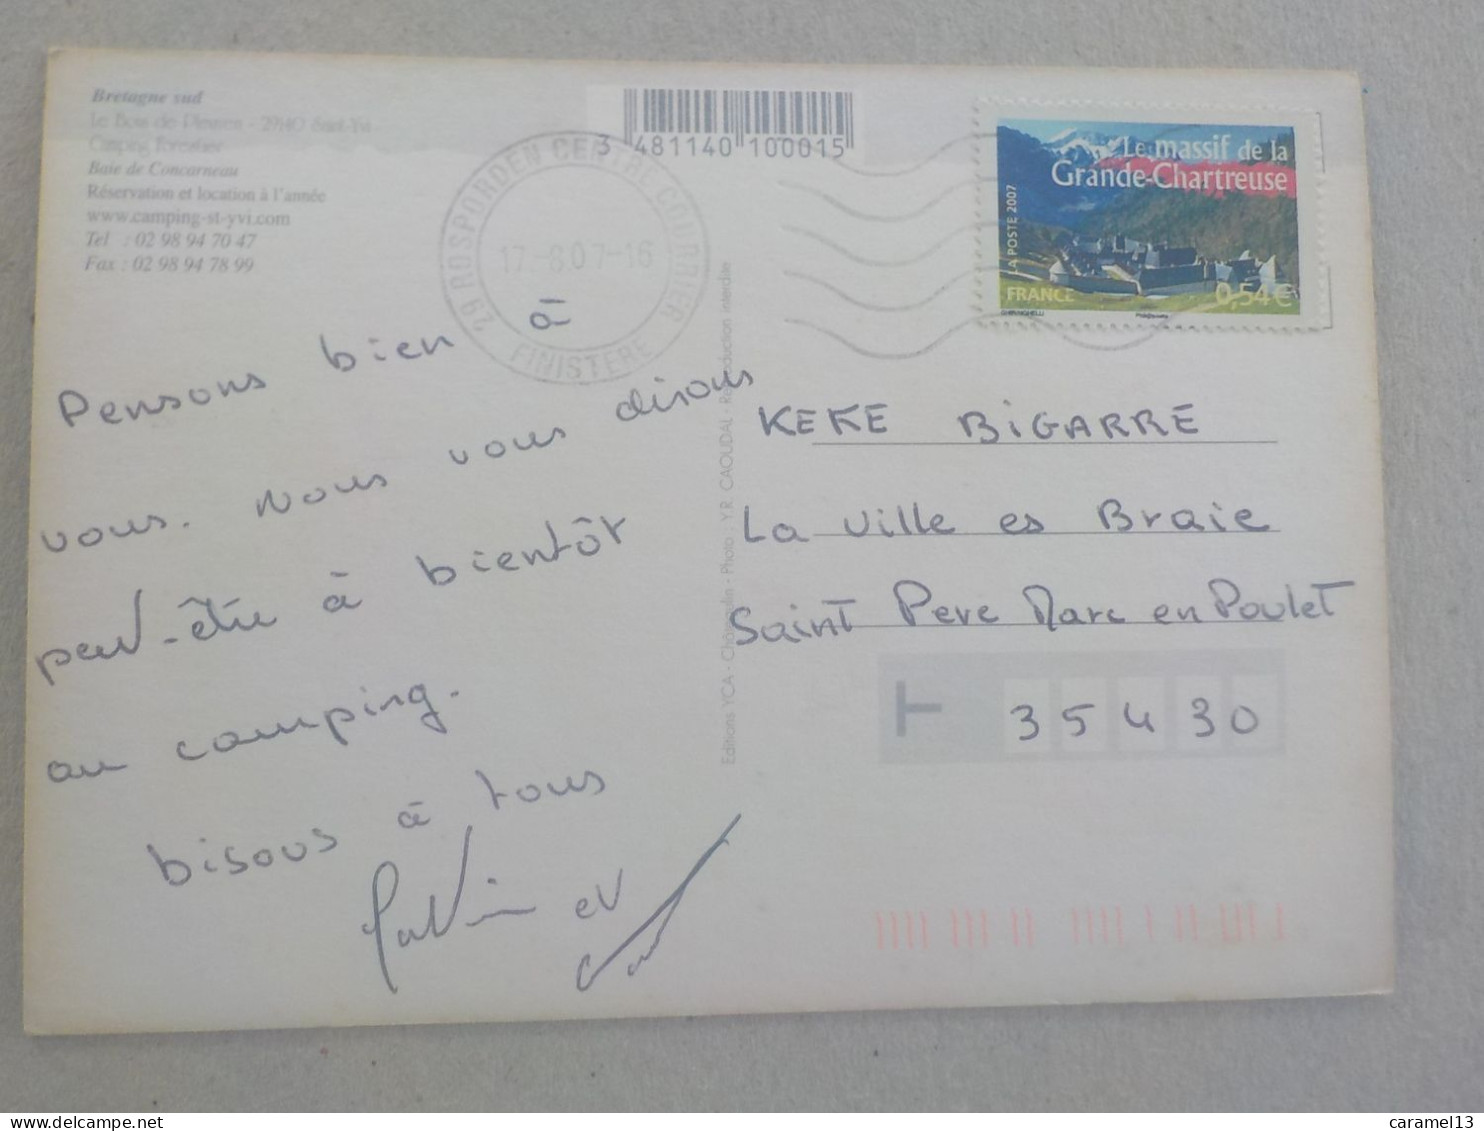 Bretagne sud
Le Bois de Pleuven - 29140 Saint-Yvi
Camping forestier
Baie de Concarneau
Réservation et location à l'année
www.camping-st-yvi.com
Tel : 02 98 94 70 47
Fax : 02 98 94 78 99
3 481140 100015
29 ROSPORDEN CENTRE COURRIER
17-8.07-16
FINISTERE
Le massif de la
Grande-Chartreuse
LA POSTE 2007
FRANCE
0,54€
Pensons bien à
vous. Nous vous disons
peut-être à bientôt
au camping.
bisous à tous
et
Editions YCA - Photo Y.R. CAOUDAL - Reproduction interdite
KEKE BIGARRE
La Ville es Braie
Saint Pere Marc en Poulet
35430
caramel13